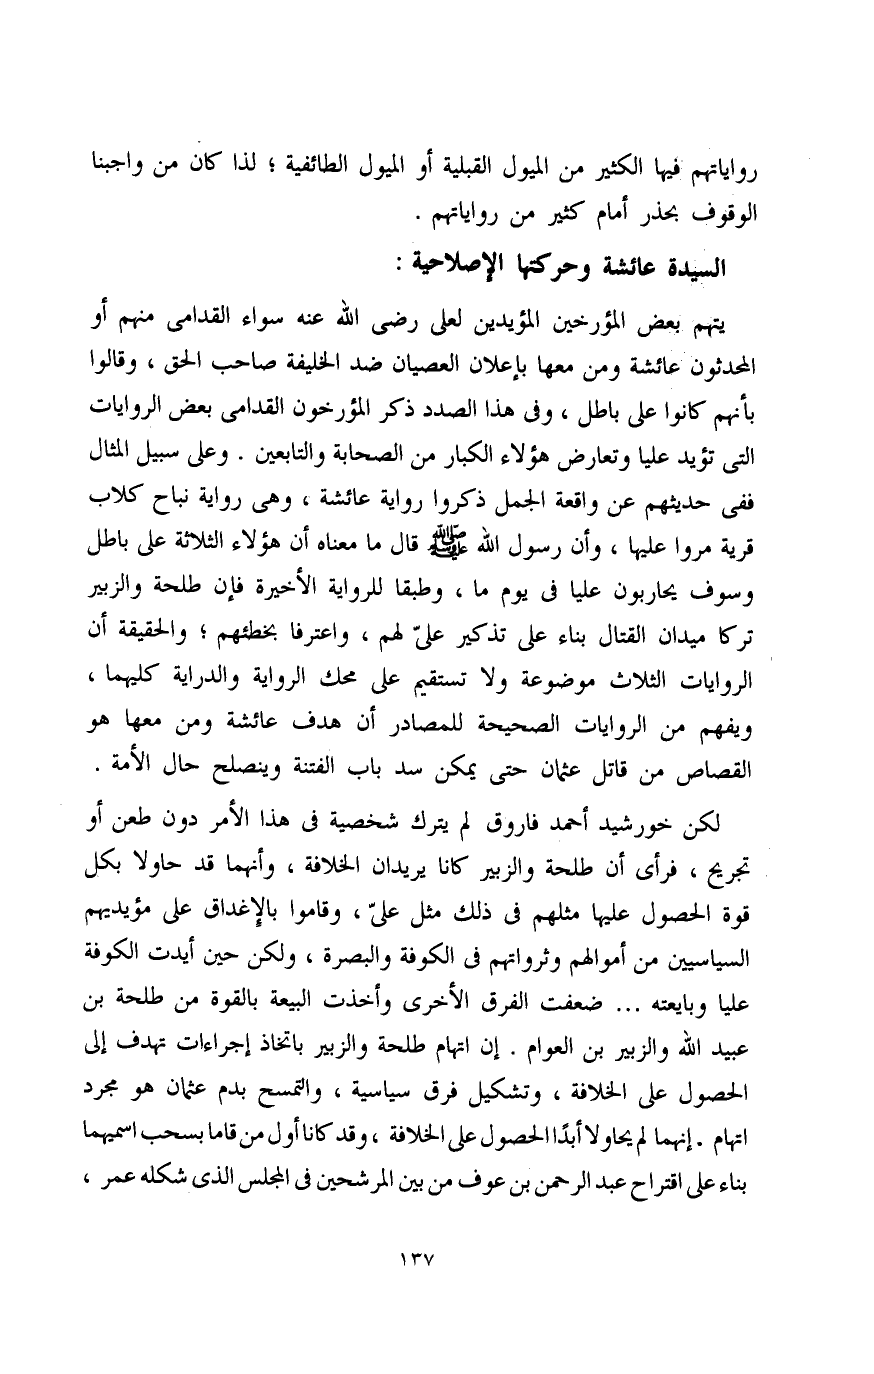 رواياتهم فيها الكثير من الميول القبلية أو الميول الطائفية ؛ لذا كان من واجبنا
الوقوف بحذر أمام كثير من رواياتهم .
السيدة عائشة وحركتها الإصلاحية :
يتهم بعض المؤرخين المؤيدين لعلى رضى الله عنه سواء القدامى منهم أو
المحدثون عائشة ومن معها بإعلان العصيان ضد الخليفة صاحب الحق ، وقالوا
بأنهم كانوا على باطل ، وفى هذا الصدد ذكر المؤرخون القدامى بعض الروايات
التى تؤيد عليا وتعارض هؤلاء الكبار من الصحابة والتابعين . وعلى سبيل المثال
ففى حديثهم عن واقعة الجمل ذكروا رواية عائشة ، وهى رواية نباح كلاب
قرية مروا عليها ، وأن رسول الله ﷺ قال ما معناه أن هؤلاء الثلاثة على باطل
وسوف يحاربون عليا فى يوم ما ، وطبقا للرواية الأخيرة فإن طلحة والزبير
تركا ميدان القتال بناء على تذكير علىّ لهم ، واعترفا بخطئهم ؛ والحقيقة أن
الروايات الثلاث موضوعة ولا تستقيم على محك الرواية والدراية كليهما ،
ويفهم من الروايات الصحيحة للمصادر أن هدف عائشة ومن معها هو
القصاص من قاتل عثمان حتى يمكن سد باب الفتنة وينصلح حال الأمة .
لكن خورشيد أحمد فاروق لم يترك شخصية فى هذا الأمر دون طعن أو
تجريح ، فرأى أن طلحة والزبير كانا يريدان الخلافة ، وأنهما قد حاولا بكل
قوة الحصول عليها مثلهم فى ذلك مثل علىّ ، وقاموا بالإغداق على مؤيديهم
السياسيين من أموالهم وثرواتهم فى الكوفة والبصرة ، ولكن حين أيدت الكوفة
عليا وبايعته ... ضعفت الفرق الأخرى وأخذت البيعة بالقوة من طلحة بن
عبيد الله والزبير بن العوام . إن اتهام طلحة والزبير باتخاذ إجراءات تهدف إلى
الحصول على الخلافة ، وتشكيل فرق سياسية ، والتمسح بدم عثمان هو مجرد
اتهام . إنهما لم يحاولا أبدًا الحصول على الخلافة ، وقد كانا أول من قاما بسحب اسميهما
بناء على اقتراح عبد الرحمن بن عوف من بين المرشحين فى المجلس الذى شكله عمر ،
١٣٧